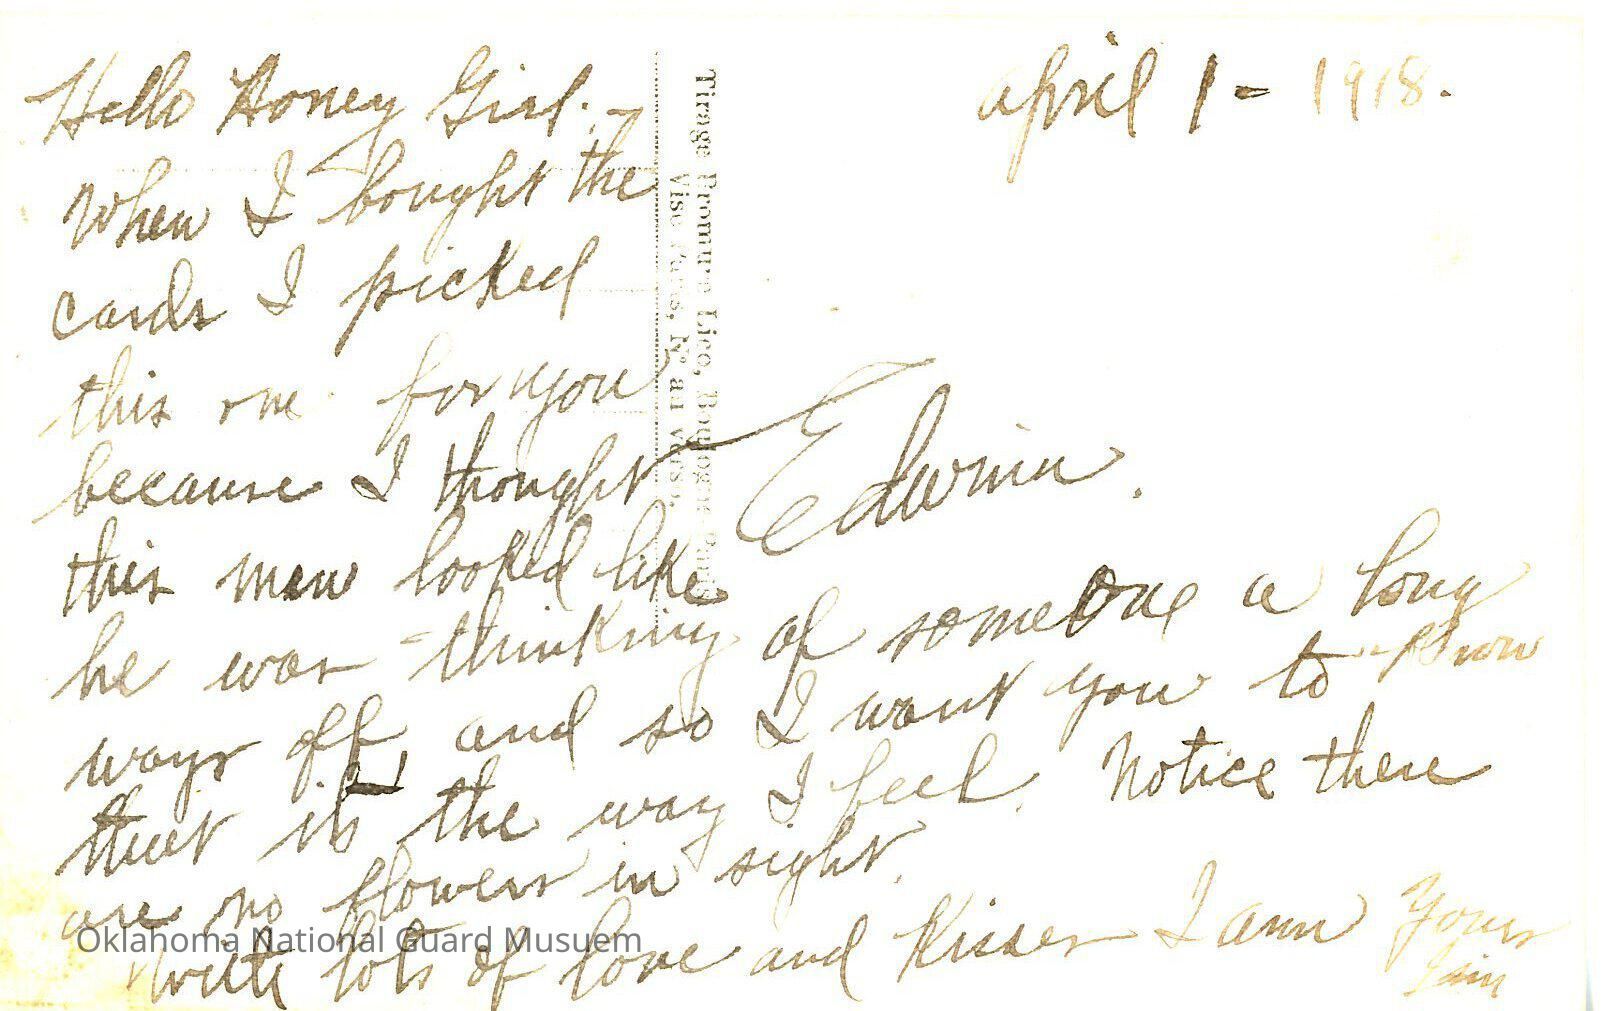 April 1 - 1918.
Hello Honey Girl. -
When I bought the
cards I picked
this one for you
because I thought
this man looked like
he was thinking of someone a long
ways off, and so I want you to know
that is the way I feel. Notice there
are no flowers in sight.
With lots of love and kisses I am Yours
Edwin.
Tirage Bromure Lico, Boulogne-Paris
Visé Paris, N° au verso.
Oklahoma National Guard Musuem